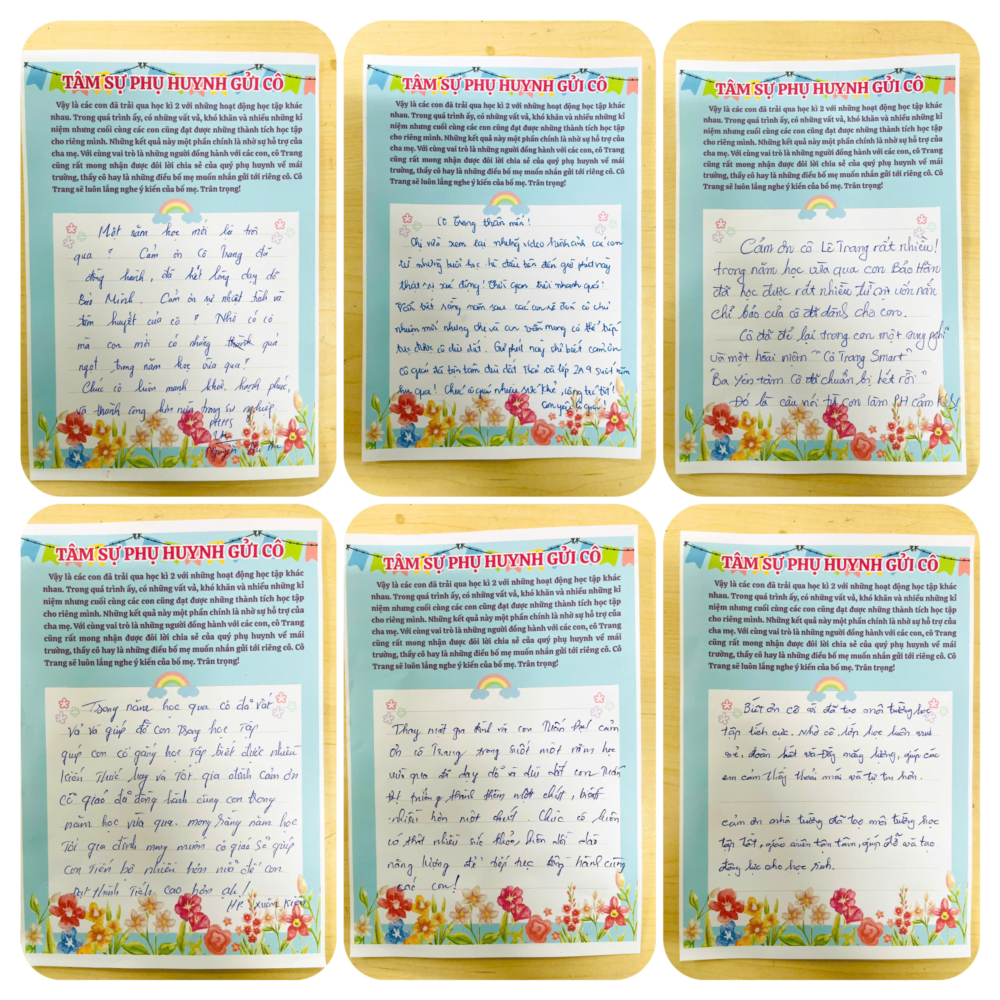 TÂM SỰ PHỤ HUYNH GỬI CÔ
Vậy là các con đã trải qua học kì 2 với những hoạt động học tập khác
nhau. Trong quá trình ấy, có những vất vả, khó khăn và nhiều những kỉ
niệm nhưng cuối cùng các con cũng đạt được những thành tích học tập
cho riêng mình. Những kết quả này một phần chính là nhờ sự hỗ trợ của
cha mẹ. Với cùng vai trò là những người đồng hành với các con, cô Trang
cũng rất mong nhận được đôi lời chia sẻ của quý phụ huynh về mái
trường, thầy cô hay là những điều bố mẹ muốn nhắn gửi tới riêng cô. Cô
Trang sẽ luôn lắng nghe ý kiến của bố mẹ. Trân trọng!
Một năm học mới là trôi
qua ? Cảm ơn Cô Trang đã
đồng hành, đã hết lòng dạy dỗ
Bảo Minh. Cảm ơn sự nhiệt tình và
tâm huyết của cô ? Nhờ có cô
mà con mới có những thành quả
ngọt trong năm học vừa qua?
Chúc cô luôn mạnh khoẻ, hạnh phúc,
và thành công hơn nữa trong sự nghiệp
PHHS
Nguyễn
TÂM SỰ PHỤ HUYNH GỬI CÔ
Vậy là các con đã trải qua học kì 2 với những hoạt động học tập khác
nhau. Trong quá trình ấy, có những vất vả, khó khăn và nhiều những kỉ
niệm nhưng cuối cùng các con cũng đạt được những thành tích học tập
cho riêng mình. Những kết quả này một phần chính là nhờ sự hỗ trợ của
cha mẹ. Với cùng vai trò là những người đồng hành với các con, cô Trang
cũng rất mong nhận được đôi lời chia sẻ của quý phụ huynh về mái
trường, thầy cô hay là những điều bố mẹ muốn nhắn gửi tới riêng cô. Cô
Trang sẽ luôn lắng nghe ý kiến của bố mẹ. Trân trọng!
Cô Trang thân mến!
Chị vừa xem lại những video hình ảnh các con
từ những buổi học hè đầu tiên đến giờ phút này
thật sự xúc động! Thời gian trôi nhanh quá!
Vẫn biết rằng năm sau các con sẽ đón cô chủ
nhiệm mới nhưng chị và con vẫn mong có thể tiếp
tục được cô dìu dắt. Giờ phút này chỉ biết cảm ơn
cô giáo đã tận tâm dìu dắt và cả lớp 2A9 suốt năm
học qua! Chúc cô giáo nhiều sức khoẻ, công tác tốt!
Con yêu cô giáo!
TÂM SỰ PHỤ HUYNH GỬI CÔ
Vậy là các con đã trải qua học kì 2 với những hoạt động học tập khác
nhau. Trong quá trình ấy, có những vất vả, khó khăn và nhiều những kỉ
niệm nhưng cuối cùng các con cũng đạt được những thành tích học tập
cho riêng mình. Những kết quả này một phần chính là nhờ sự hỗ trợ của
cha mẹ. Với cùng vai trò là những người đồng hành với các con, cô Trang
cũng rất mong nhận được đôi lời chia sẻ của quý phụ huynh về mái
trường, thầy cô hay là những điều bố mẹ muốn nhắn gửi tới riêng cô. Cô
Trang sẽ luôn lắng nghe ý kiến của bố mẹ. Trân trọng!
Cảm ơn cô Lê Trang rất nhiều!
trong năm học vừa qua con Bảo Hân
đã học được rất nhiều từ sự uốn nắn
chỉ bảo của cô đã dành cho con.
Cô đã để lại trong con một suy nghĩ
và một hoài niệm "Cô Trang Smart"
"Ba yên tâm cô đã chuẩn bị hết rồi"
Đó là câu nói từ con làm PH cảm kích!
TÂM SỰ PHỤ HUYNH GỬI CÔ
Vậy là các con đã trải qua học kì 2 với những hoạt động học tập khác
nhau. Trong quá trình ấy, có những vất vả, khó khăn và nhiều những kỉ
niệm nhưng cuối cùng các con cũng đạt được những thành tích học tập
cho riêng mình. Những kết quả này một phần chính là nhờ sự hỗ trợ của
cha mẹ. Với cùng vai trò là những người đồng hành với các con, cô Trang
cũng rất mong nhận được đôi lời chia sẻ của quý phụ huynh về mái
trường, thầy cô hay là những điều bố mẹ muốn nhắn gửi tới riêng cô. Cô
Trang sẽ luôn lắng nghe ý kiến của bố mẹ. Trân trọng!
Trong năm học qua cô đã vất
vả và giúp đỡ con trong học tập
giúp con cố gắng học tập biết được nhiều
kiến thức hay và tốt gia đình cảm ơn
cô giáo đã đồng hành cùng con trong
năm học vừa qua. mong rằng năm học
tới gia đình mong muốn cô giáo sẽ giúp
con tiến bộ nhiều hơn nữa để con
đạt thành tích cao hơn ạ!
HP. Xuân Kiên
TÂM SỰ PHỤ HUYNH GỬI CÔ
Vậy là các con đã trải qua học kì 2 với những hoạt động học tập khác
nhau. Trong quá trình ấy, có những vất vả, khó khăn và nhiều những kỉ
niệm nhưng cuối cùng các con cũng đạt được những thành tích học tập
cho riêng mình. Những kết quả này một phần chính là nhờ sự hỗ trợ của
cha mẹ. Với cùng vai trò là những người đồng hành với các con, cô Trang
cũng rất mong nhận được đôi lời chia sẻ của quý phụ huynh về mái
trường, thầy cô hay là những điều bố mẹ muốn nhắn gửi tới riêng cô. Cô
Trang sẽ luôn lắng nghe ý kiến của bố mẹ. Trân trọng!
Thay mặt gia đình và con Tuấn Đạt cảm
ơn cô Trang trong suốt một năm học
vừa qua đã dạy dỗ và dìu dắt con Tuấn
Đạt trưởng thành thêm một chút,
nhiều hơn một chút. Chúc cô luôn
có thật nhiều sức khỏe, luôn dồi dào
năng lượng để tiếp tục đồng hành cùng
các con!
TÂM SỰ PHỤ HUYNH GỬI CÔ
Vậy là các con đã trải qua học kì 2 với những hoạt động học tập khác
nhau. Trong quá trình ấy, có những vất vả, khó khăn và nhiều những kỉ
niệm nhưng cuối cùng các con cũng đạt được những thành tích học tập
cho riêng mình. Những kết quả này một phần chính là nhờ sự hỗ trợ của
cha mẹ. Với cùng vai trò là những người đồng hành với các con, cô Trang
cũng rất mong nhận được đôi lời chia sẻ của quý phụ huynh về mái
trường, thầy cô hay là những điều bố mẹ muốn nhắn gửi tới riêng cô. Cô
Trang sẽ luôn lắng nghe ý kiến của bố mẹ. Trân trọng!
Biết ơn cô đã tạo môi trường học
tập tích cực. Nhờ cô, lớp học luôn vui
vẻ, đoàn kết và đầy năng lượng, giúp các
em cảm thấy thoải mái và tự tin hơn.
cảm ơn nhà trường đã tạo môi trường học
tập tốt, giáo viên tận tâm, giúp đỡ và tạo
động lực cho học sinh.